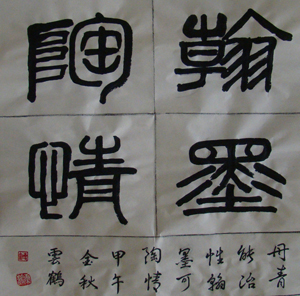 翰墨
陶情
丹青
能治
性翰
墨可
陶情
甲午
金秋
雲鶴